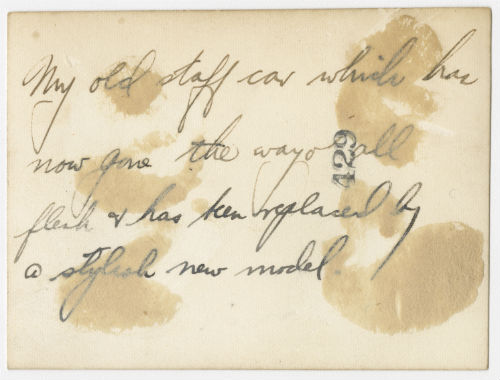 My old staff car which has
now gone the way o' all
flesh & has been replaced by
a stylish new model.
429